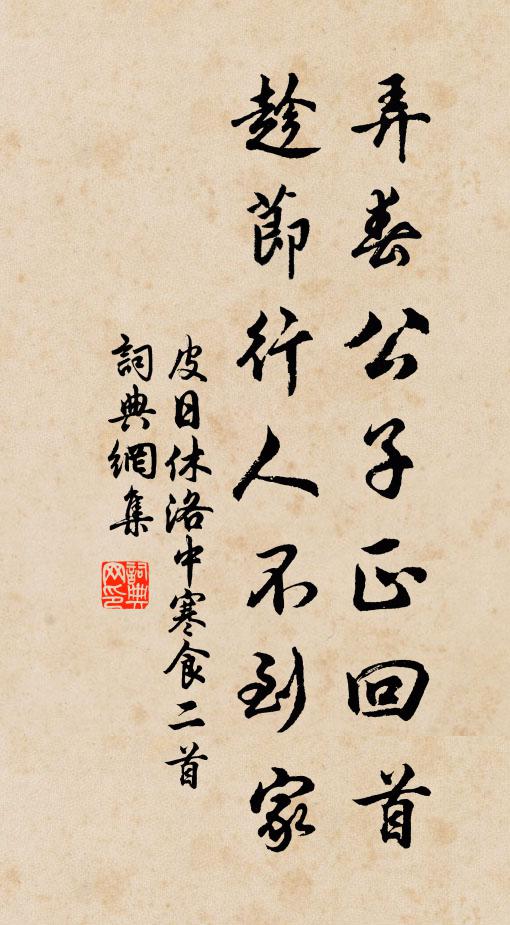 弄春公子正回首
趁節行人不到家
皮日休洛中寒食二首
詞典網集
詞典
网印